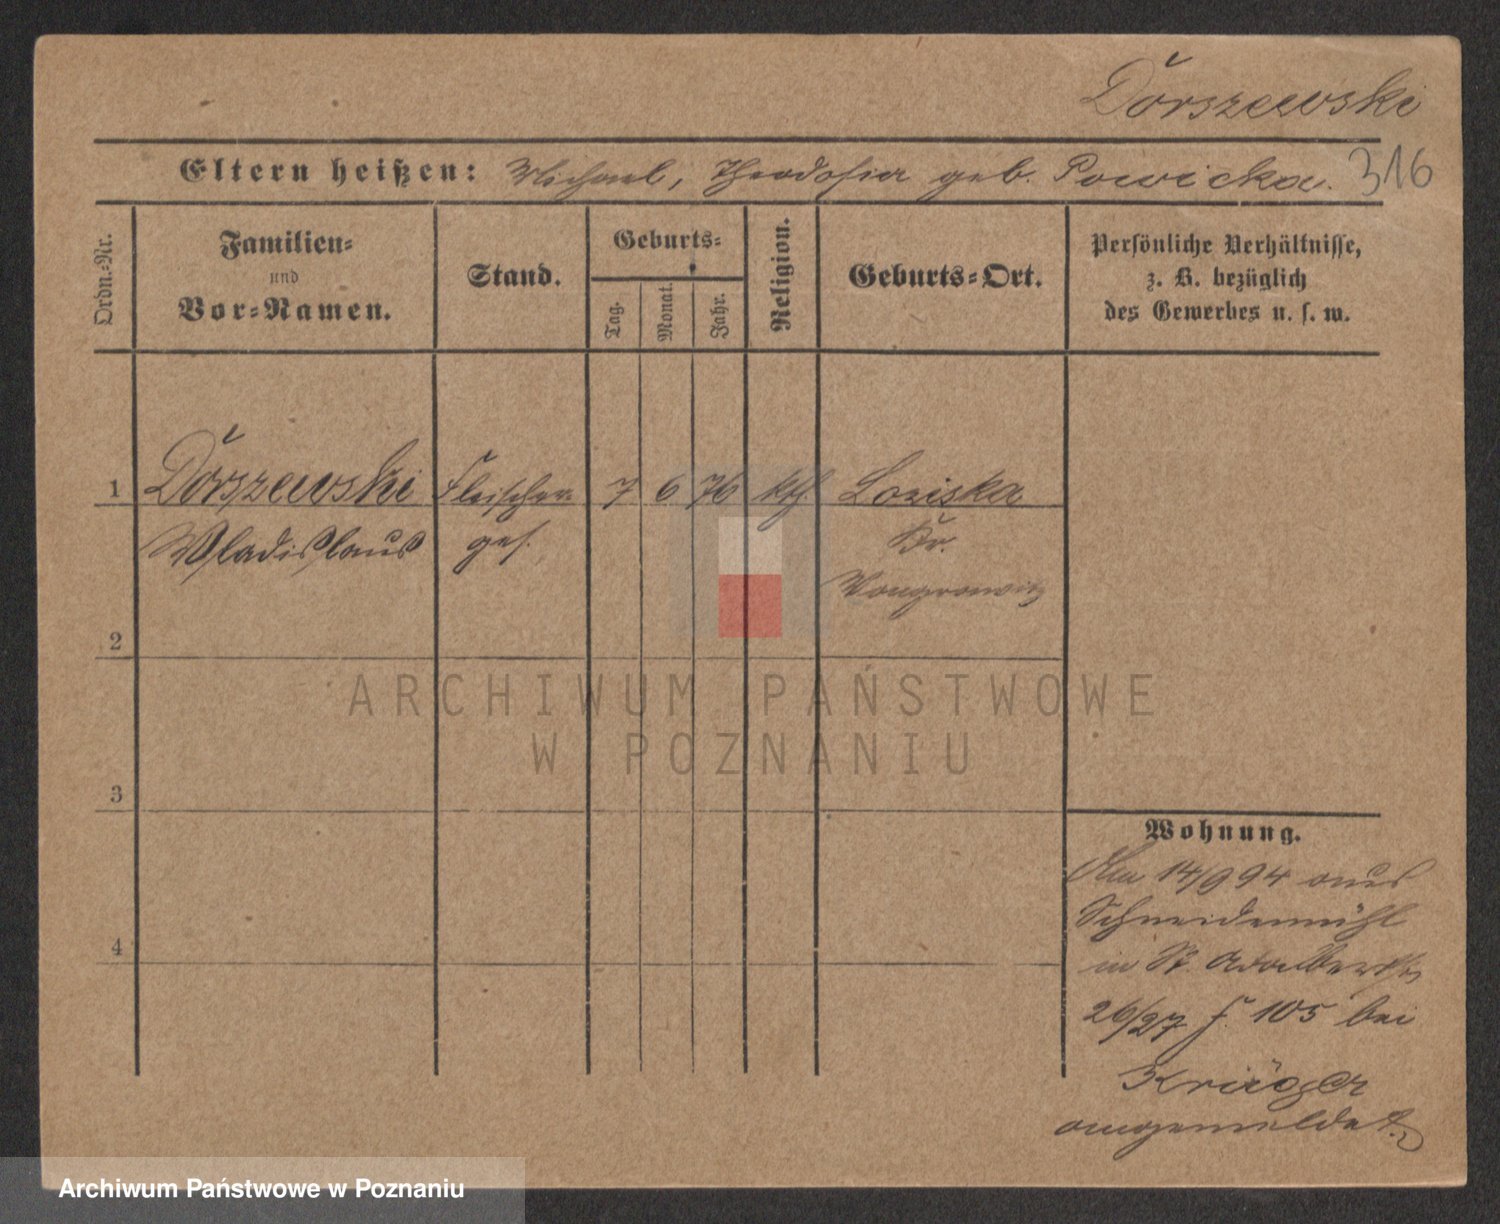 Dorszewski
Eltern heißen: Michael, Theodosia geb. Powicka. 316
Ordn.-Nr.
Familien-
und
Vor-Namen.
Stand.
Geburts-
Tag.
Monat.
Jahr.
Religion.
Geburts-Ort.
Persönliche Verhältnisse,
z. B. bezüglich
des Gewerbes u. s. w.
1 Dorszewski Fleischer 7 6 76 kth Loziska
Wladislaus ges. Kr.
Wongrowitz
2
3
4
Wohnung.
Am 14/9 94 aus
Schneidemühl
in St. Adalbertstr
26/27 f. 105 bei
Krüger
angemeldet.
ARCHIWUM PAŃSTWOWE
W POZNANIU
Archiwum Państwowe w Poznaniu